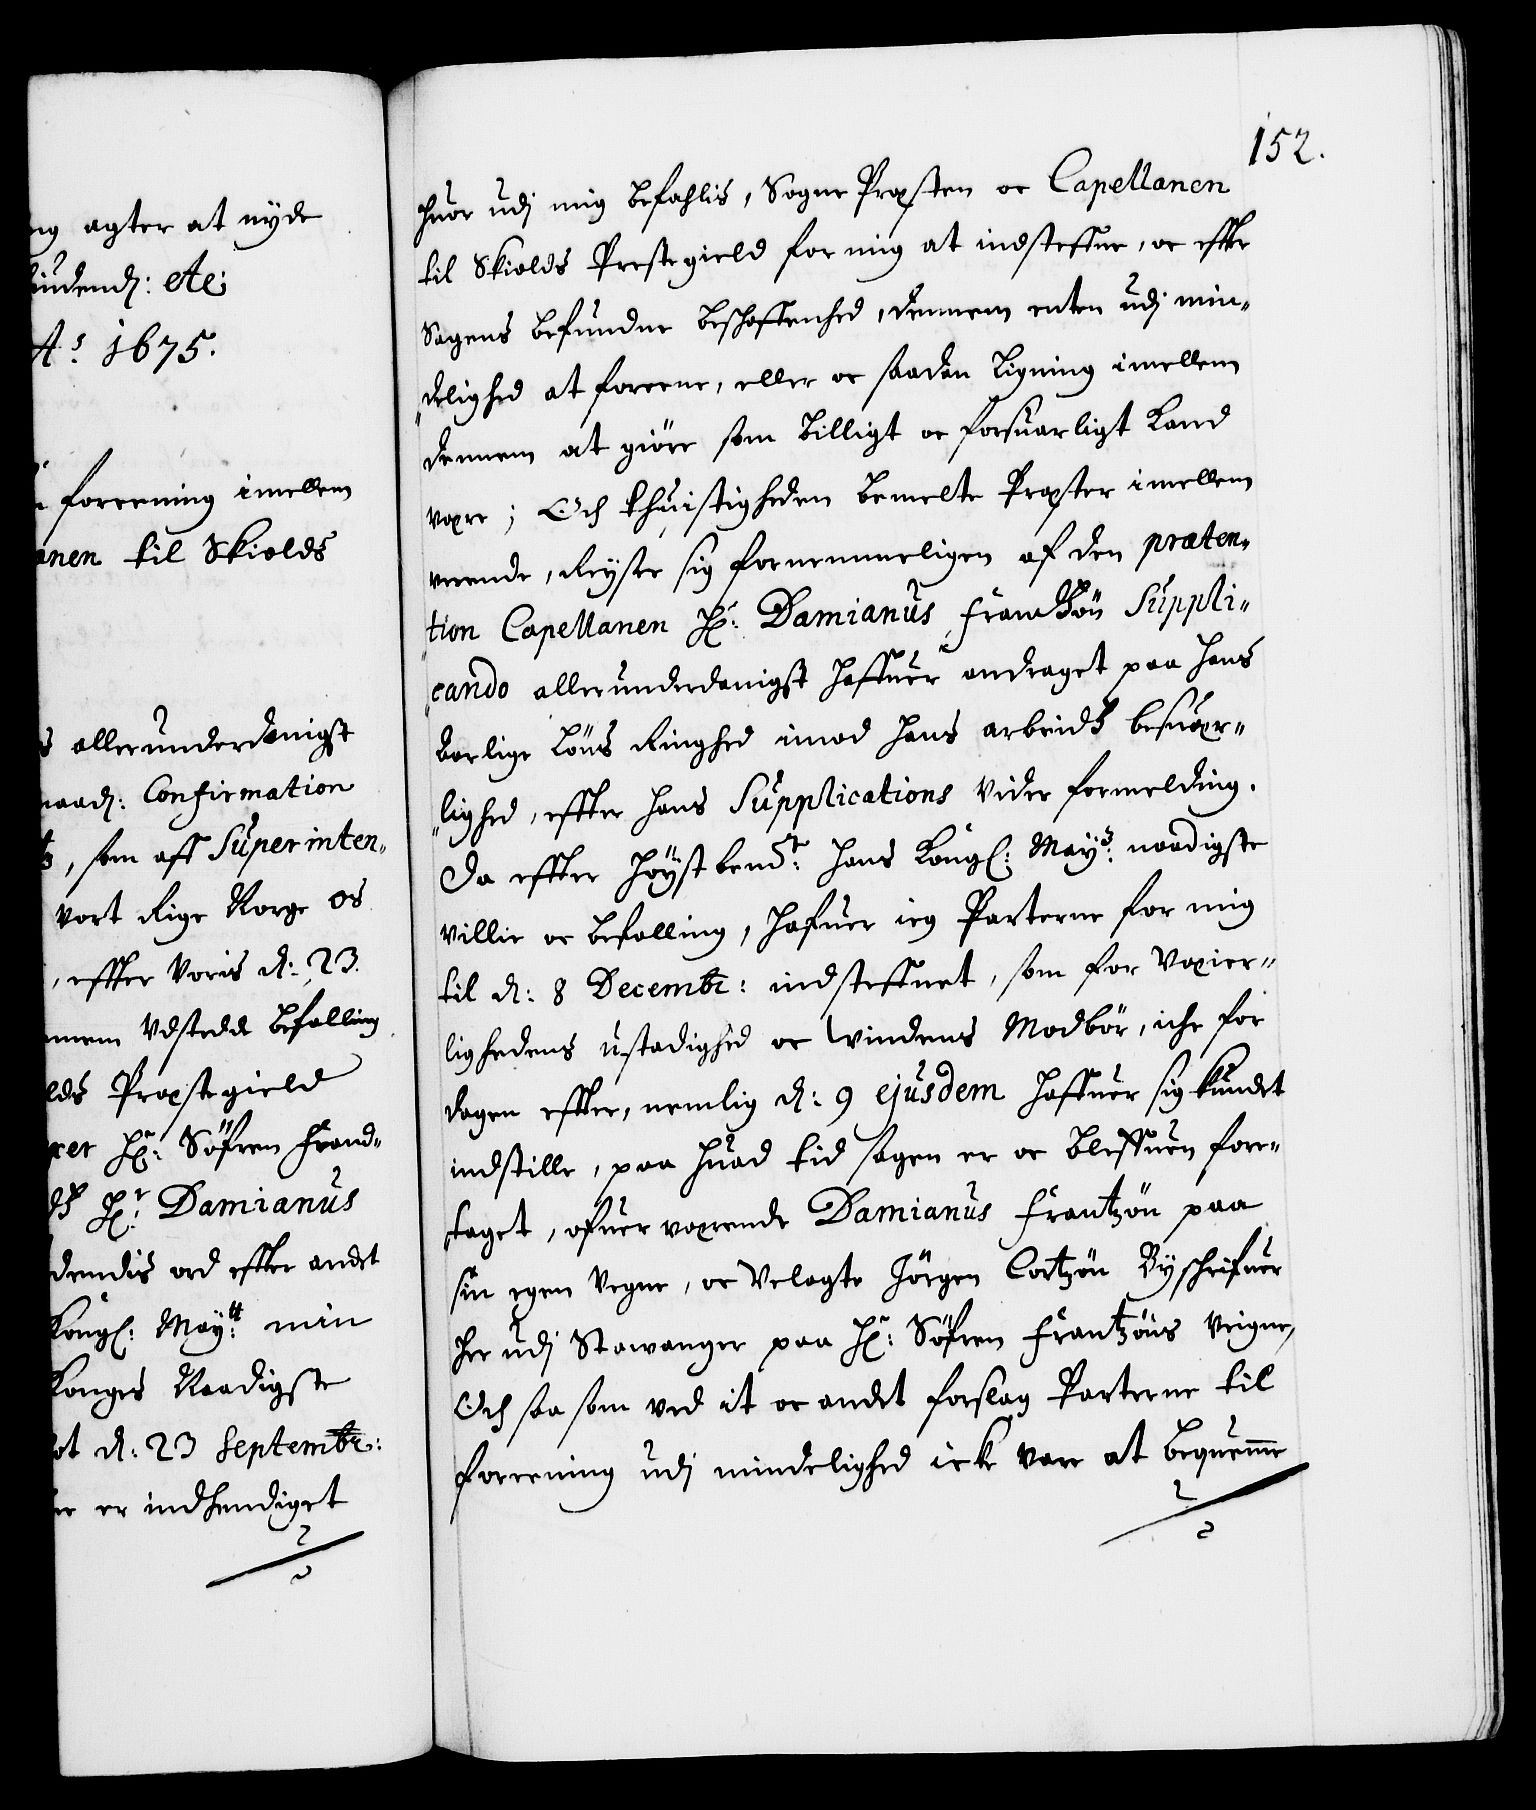 ng agter at nÿde
biudendis: etc:
Aº 1675.
foreening imellem
anen til Skiolds
s allerunderdanigst
naad: Confirmation
, som aff Superinten„
vort Rige Norge os
, effter Voris d: 23.
nnem Vdstedde befalling
lds Præstegield
Hr: Söfren Frand„
Hr: Damianus
dendis ord effter andet
Kongl: Maÿtt: min
Konges Naadigste
ot d: 23 Septembr:
er indhendiget
152.
huor udj mig befahlis, Sogne Præsten oc Capellanen
til Skiolds Prestegield for mig at indsteffne, oc effter
Sagens befundne beschaffenhed, dennem enten udj min„
„delighed at foreene, eller oc saadan Ligning imellem
dennem at giöre som billigt oc forsuarligt kand
være; Och thuistigheden bemelte Præster imellem
verende, Reÿste sig fornemmeligen af den præten„
tion Capellanen Hr: Damianus Frandtzön Suppli„
„cando allerunderdanigst haffuer andraget paa hans
aarlige Löns Ringhed imod hans arbeids besuær„
„lighed, effter hans Supplications Vider formelding.
Da effter höÿstbemte: hans Kongl: Maÿs: naadigste
villie oc befalling, hafuer ieg Parterne for mig
til d: 8 Decembr: indsteffnet, som for Væier„
lighedens ustadighed oc Windens Modbör, iche för
dagen effter, nemlig d: 9 ejusdem haffuer sig kundet
indstille, paa huad tid sagen er oc bleffuen fore„
taget, ofuerværende Damianus Frantzön paa
sin egen Vegne, oc Velagte Jörgen Cortzön Bÿschrifuer
her udj Stawanger paa Hr: Söfren Frantzöns Veigne,
Och saa som ved it oc andet forslag Parterne til
foreening udj mindelighed icke vare at bequemme